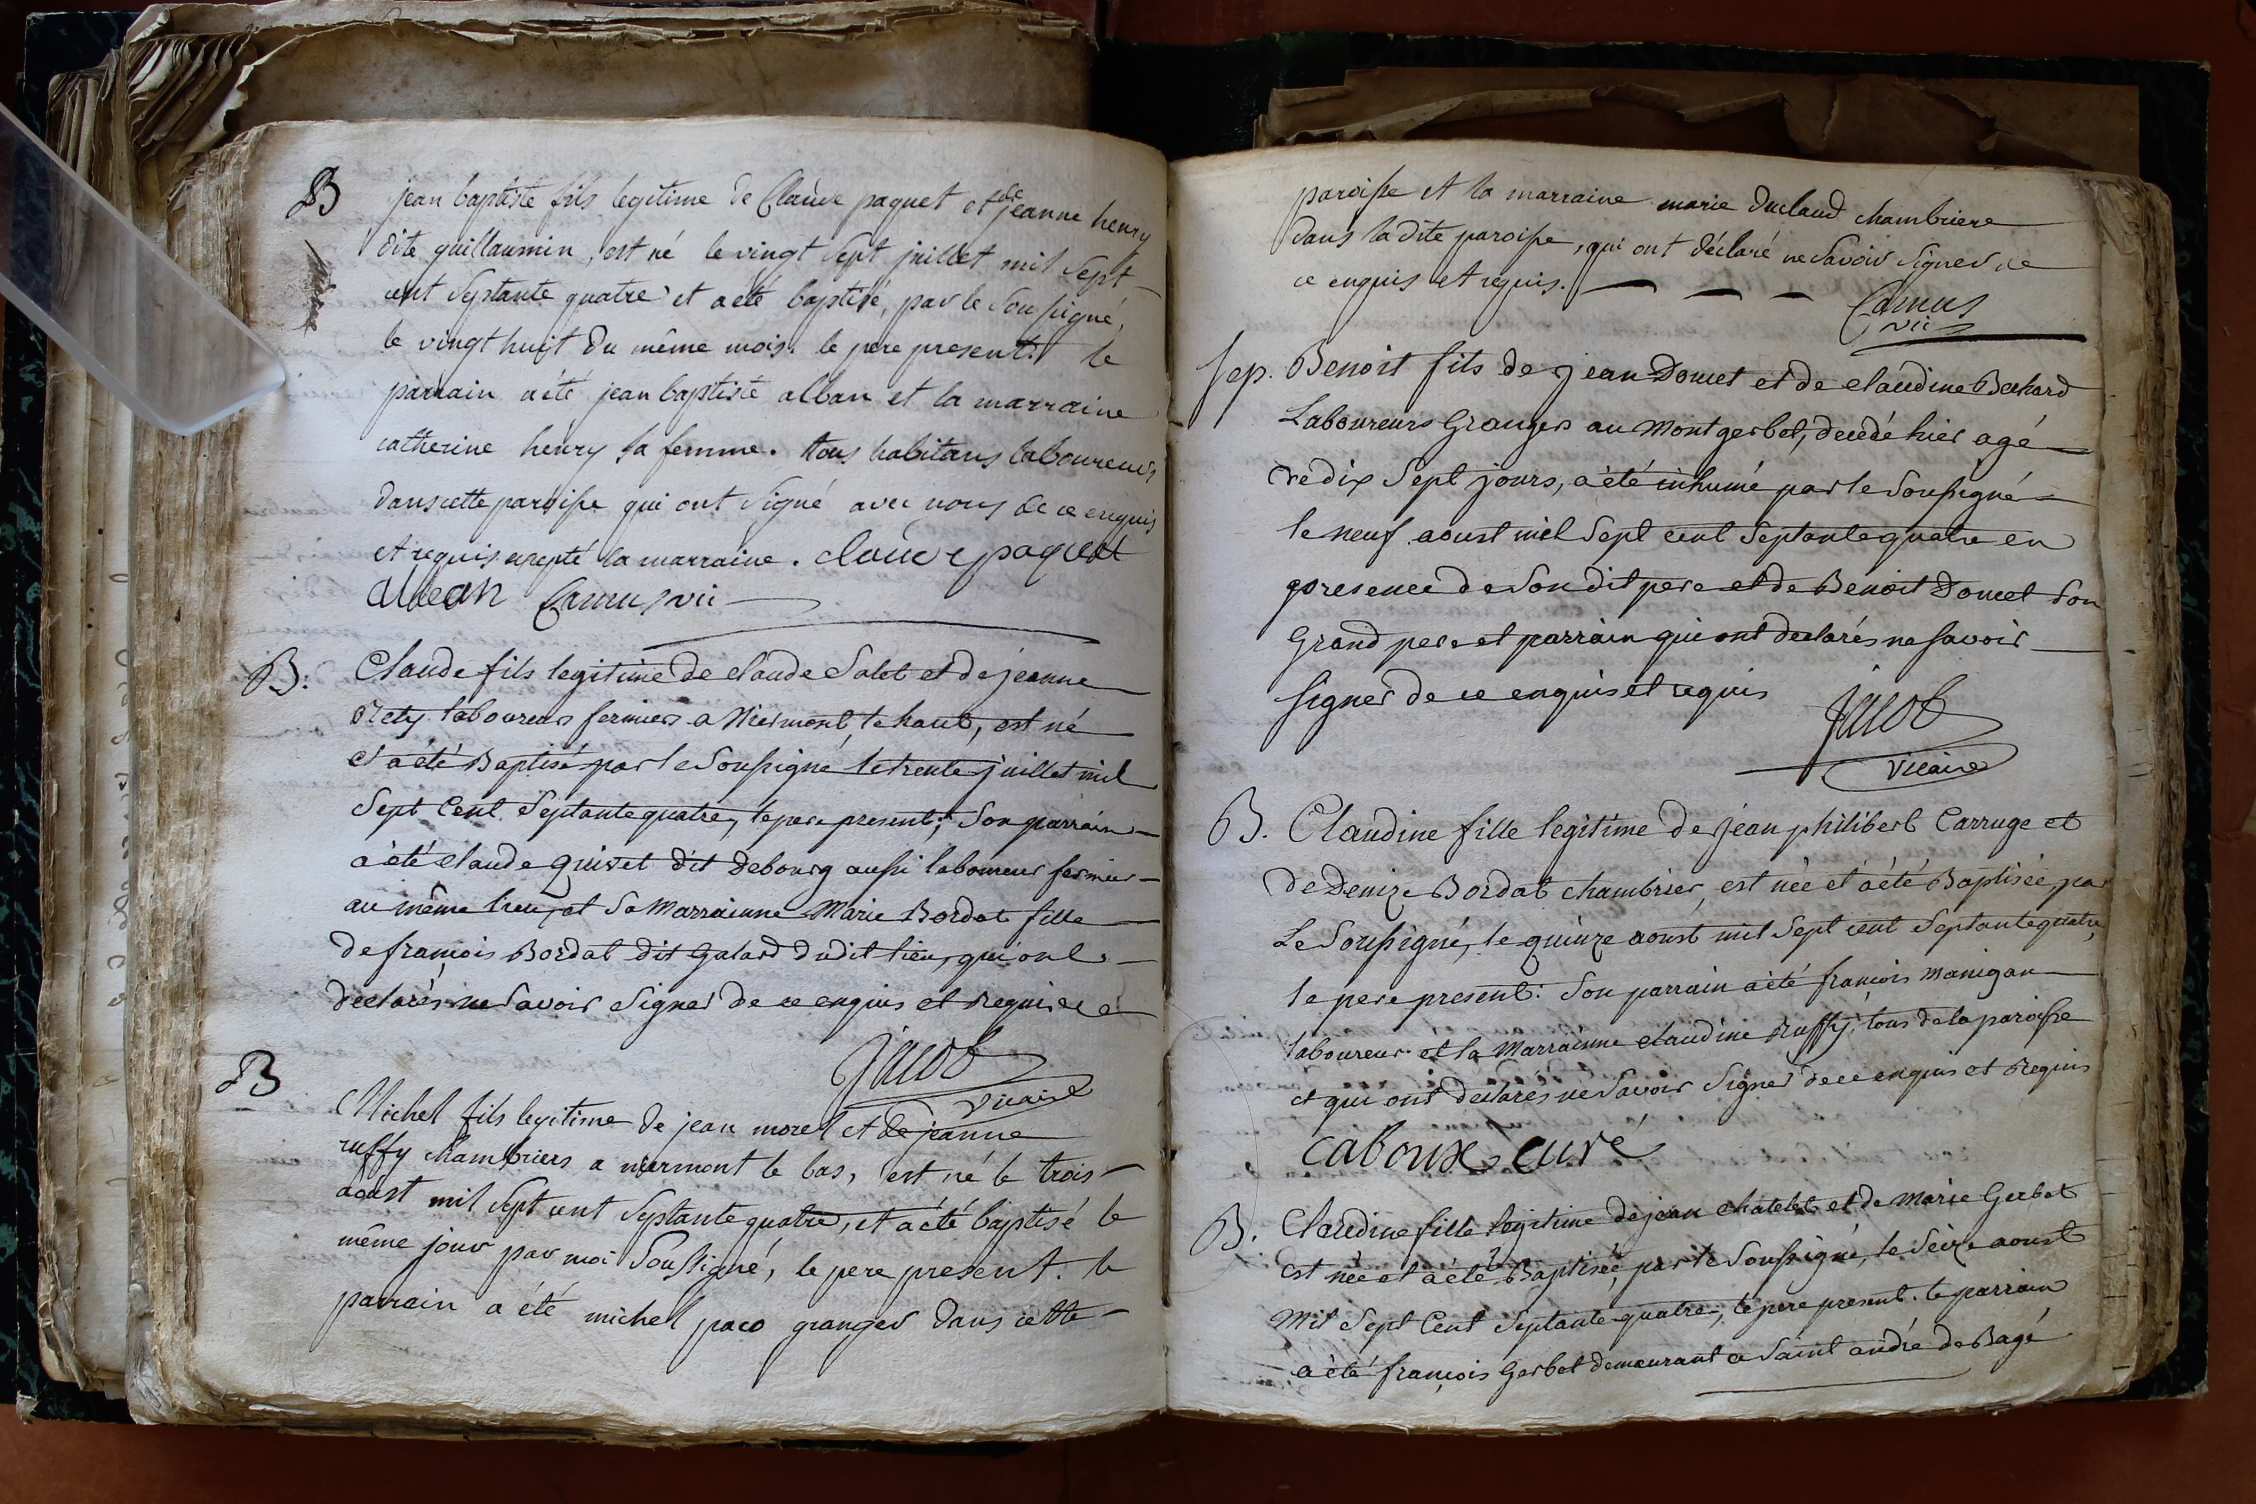 B jean baptiste fils legitime de Claude paquet et de jeanne henry
dite guillaumin, est né le vingt sept juillet mil sept
cent septante quatre et a eté baptisé, par le soussigné,
le vingt huit du même mois. le pere present. le
parrain a été jean baptiste alban et la marraine
catherine henry sa femme. tous habitans laboureurs
dans cette paroisse qui ont signé avec nous de ce enquis
et requis excepté la marraine. claude paquet
alban Camus vic
B. Claude fils legitime de claude Salet et de jeanne
Rety laboureurs fermiers a Niermont, le haut, est né
et a été Baptisé par le soussigné le trente juillet mil
Sept Cent Septante quatre, le pere present; Son parrain
a été claude quivet dit debourg aussi laboureur fermier
au même lieu, et Sa Marrainne Marie Bordat fille
de françois Bordat dit Galard dudit lieu, qui ont
declarés ne savoir signer de ce enquis et requis
jacob
Vicaire
B Michel fils legitime de jean morel et de jeanne
ruffy chambriers a niermont le bas, est né le trois
aoust mil sept cent septante quatre, et a été baptisé le
même jour par moi soussigné, le pere present. le
parrain a été michel paco granger dans cette
paroisse et la marraine marie duclaud chambriere
dans la dite paroisse, qui ont déclaré ne savoir signer de
ce enquis et requis.
Camus
vic
Sep. Benoit fils de jean Doucet et de claudine Bechard
Laboureurs Grangers au Montgerbet, decedé hier agé
de dix Sept jours, a été inhumé par le soussigné
le neuf aoust mil Sept cent Septante quatre en
presence de son dit pere et de Benoit Doucet son
Grand pere et parrain qui ont declarés ne savoir
signer de ce enquis et requis
jacob
Vicaire
B. Claudine fille legitime de jean philibert Carruge et
de Denize Bordat chambrier, est née et a été Baptisée, par
Le Soussigné, le quinze aoust mil Sept cent Septante quatre,
le pere present: Son parrain a été françois Manigan
laboureur et la Marrainne claudine Ruffy: tous de la paroisse
et qui ont declarés ne savoir signer de ce enquis et requis
caboux curé
B. Claudine fille legitime de jean chatelet et de Marie Gerbet
est née et a été Baptisée, par le Soussigné, le Seize aoust
Mil Sept Cent Septante quatre, le pere present. le parrain
a été françois Gerbet demeurant a Saint andré de Bagé